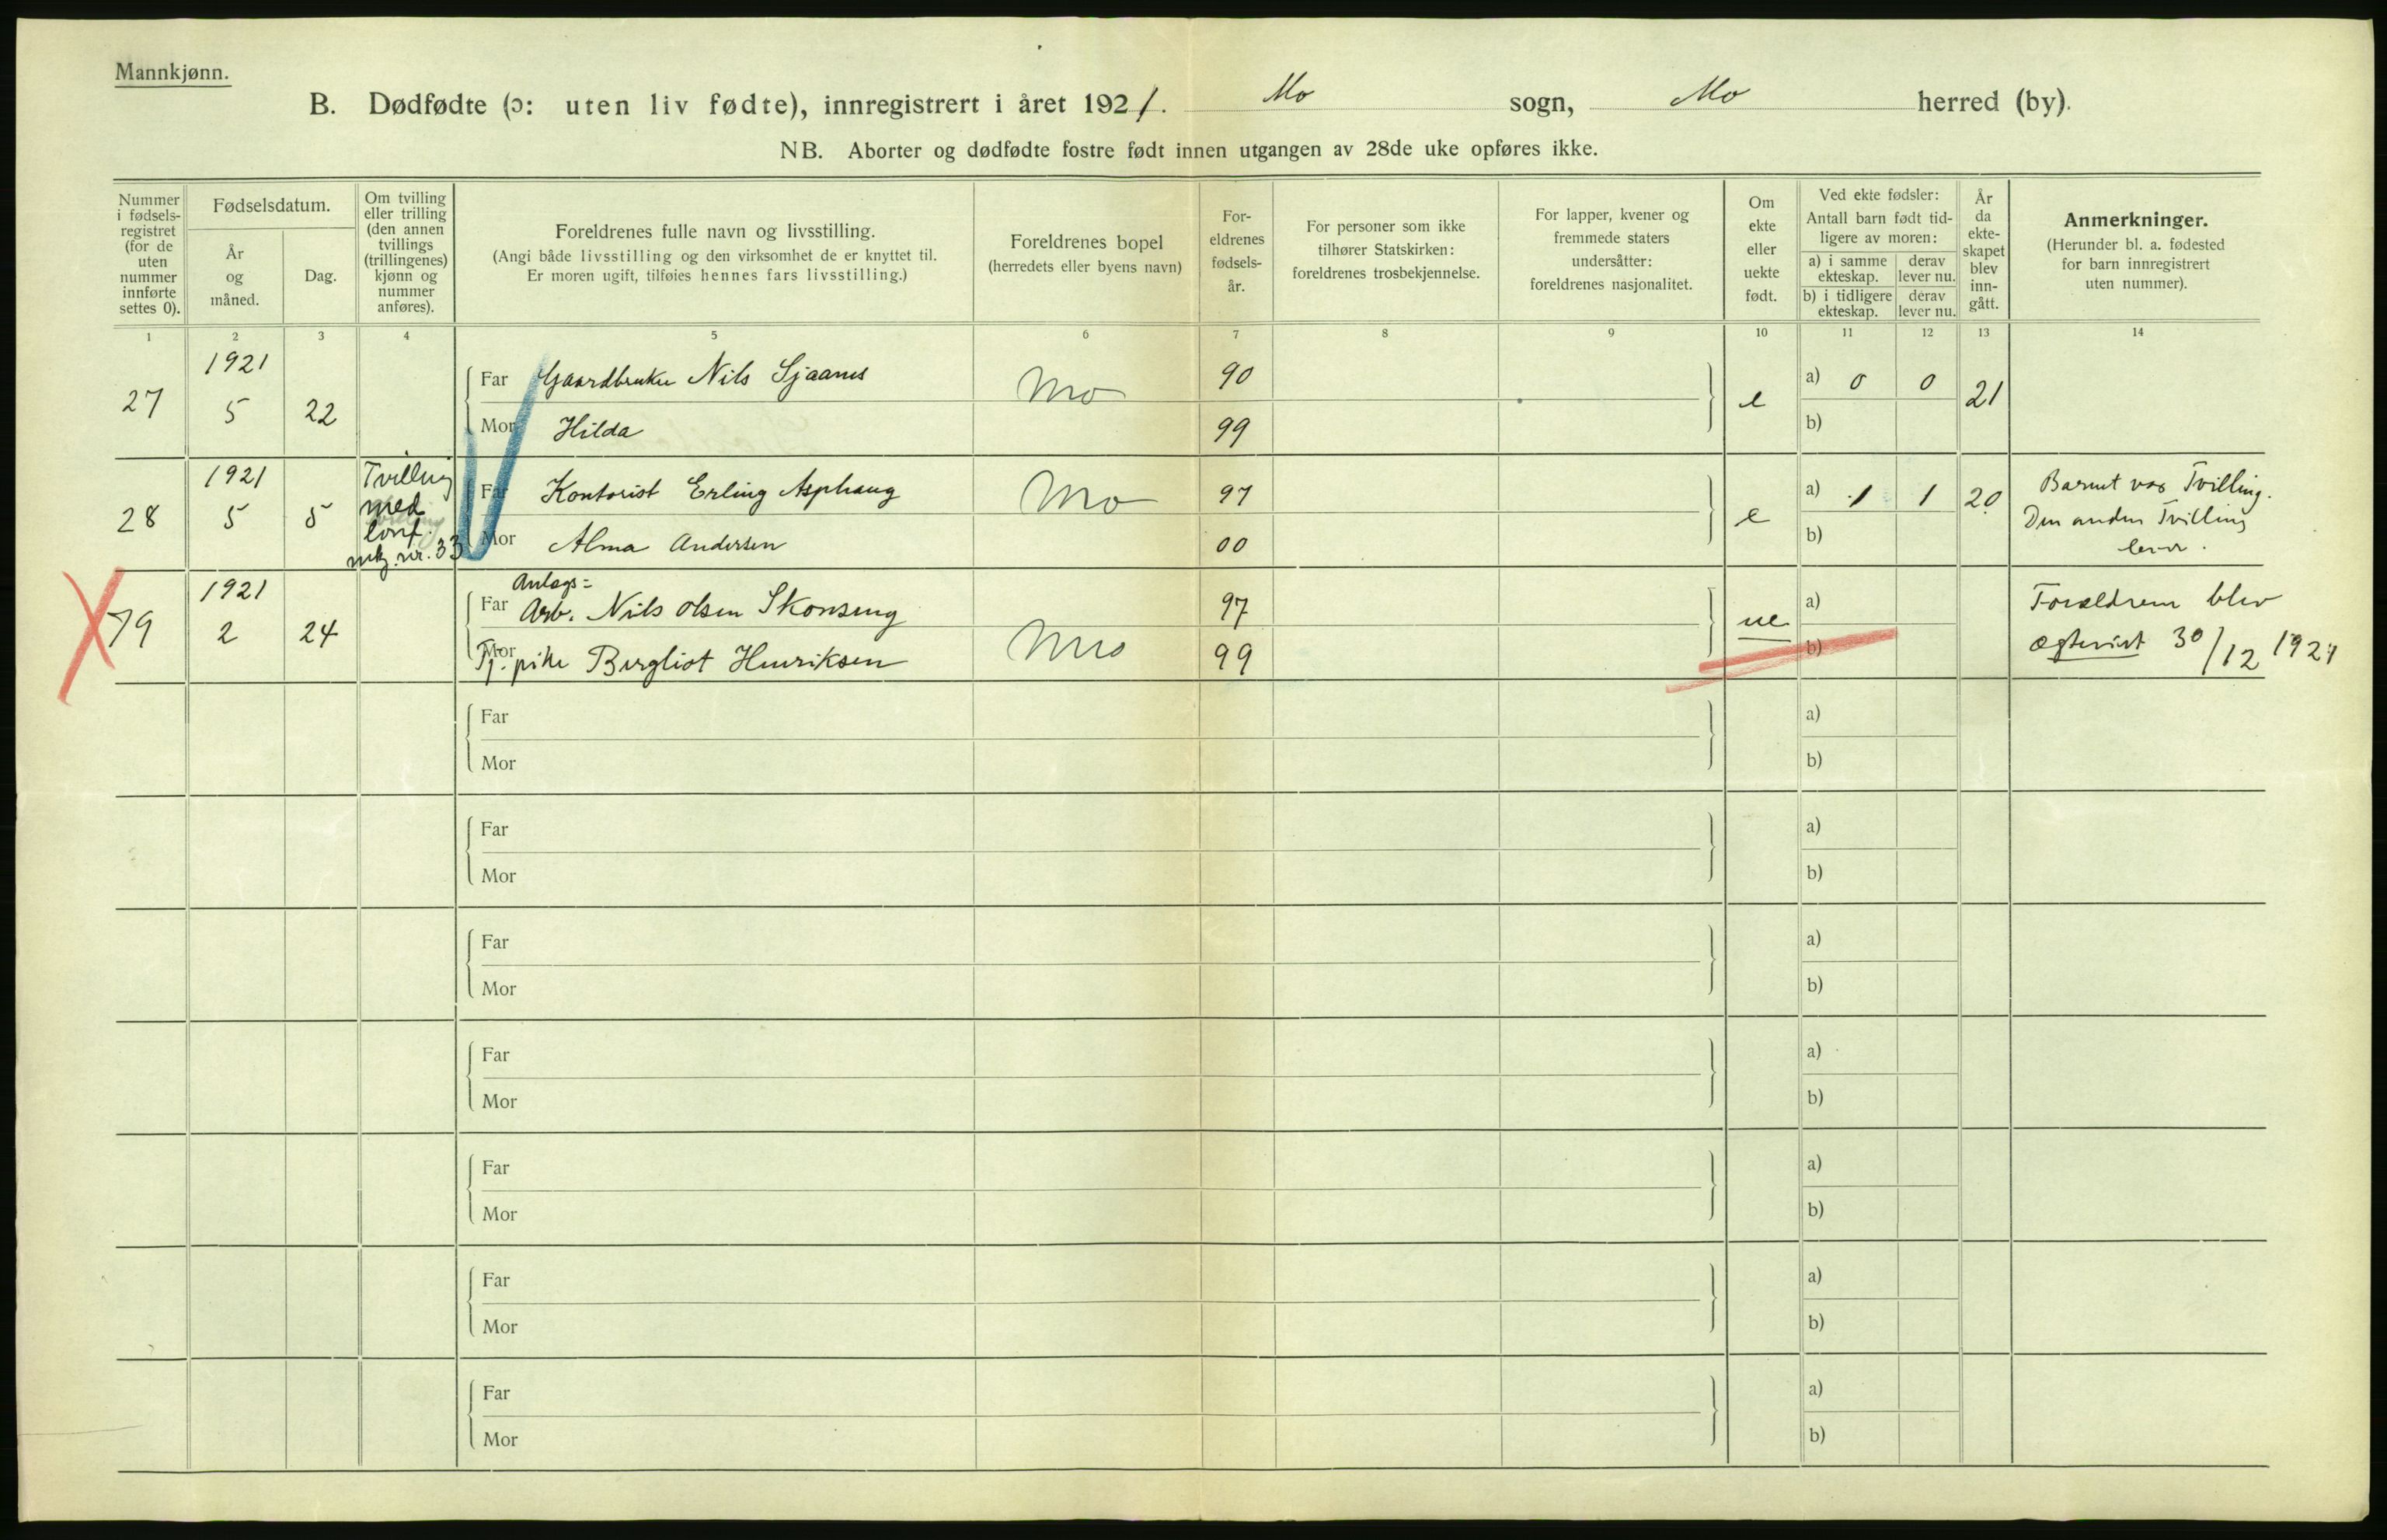 Mannkjønn.
B. Dødfødte (ɔ: uten liv fødte), innregistrert i året 1921. Mo sogn, Mo herred (by).
NB. Aborter og dødfødte fostre født innen utgangen av 28de uke opføres ikke.
Nummer i fødsels-registret (for de uten nummer innførte settes 0).
Fødselsdatum.
År og måned.
Dag.
Om tvilling eller trilling (den annen tvillings (trillingenes) kjønn og nummer anføres).
Foreldrenes fulle navn og livsstilling.
(Angi både livsstilling og den virksomhet de er knyttet til.
Er moren ugift, tilføies hennes fars livsstilling.)
Foreldrenes bopel
(herredets eller byens navn)
For-eldrenes fødsels-år.
For personer som ikke tilhører Statskirken: foreldrenes trosbekjennelse.
For lapper, kvener og fremmede staters undersåtter: foreldrenes nasjonalitet.
Om ekte eller uekte født.
Ved ekte fødsler:
Antall barn født tid-ligere av moren:
a) i samme ekteskap.
derav lever nu.
b) i tidligere ekteskap.
derav lever nu.
År da ekte-skapet blev inn-gått.
Anmerkninger.
(Herunder bl. a. fødested for barn innregistrert uten nummer).
1 2 3 4 5 6 7 8 9 10 11 12 13 14
1921
27 5 22
Far Gaardbruker Nils Sjaanes Mo 90 e a) 0 0 21
Mor Hilda 99 b)
1921
28 5 5
Tvilling
med
mk. nr. 33
Far Kontorist Erling Asphaug Mo 97 e a) 1 1 20
Mor Alma Andersen 00 b)
Barnet var Tvilling.
Den anden Tvilling
lever.
1921
79 2 24
Anlegs=
Far Arb. Nils Olsen Skonseng 97 ue a)
Mor Tj. pike Bergliot Henriksen Mo 99 b)
Forældrene blev
ægteviet 30/12 1921
Far a)
Mor b)
Far a)
Mor b)
Far a)
Mor b)
Far a)
Mor b)
Far a)
Mor b)
Far a)
Mor b)
Far a)
Mor b)